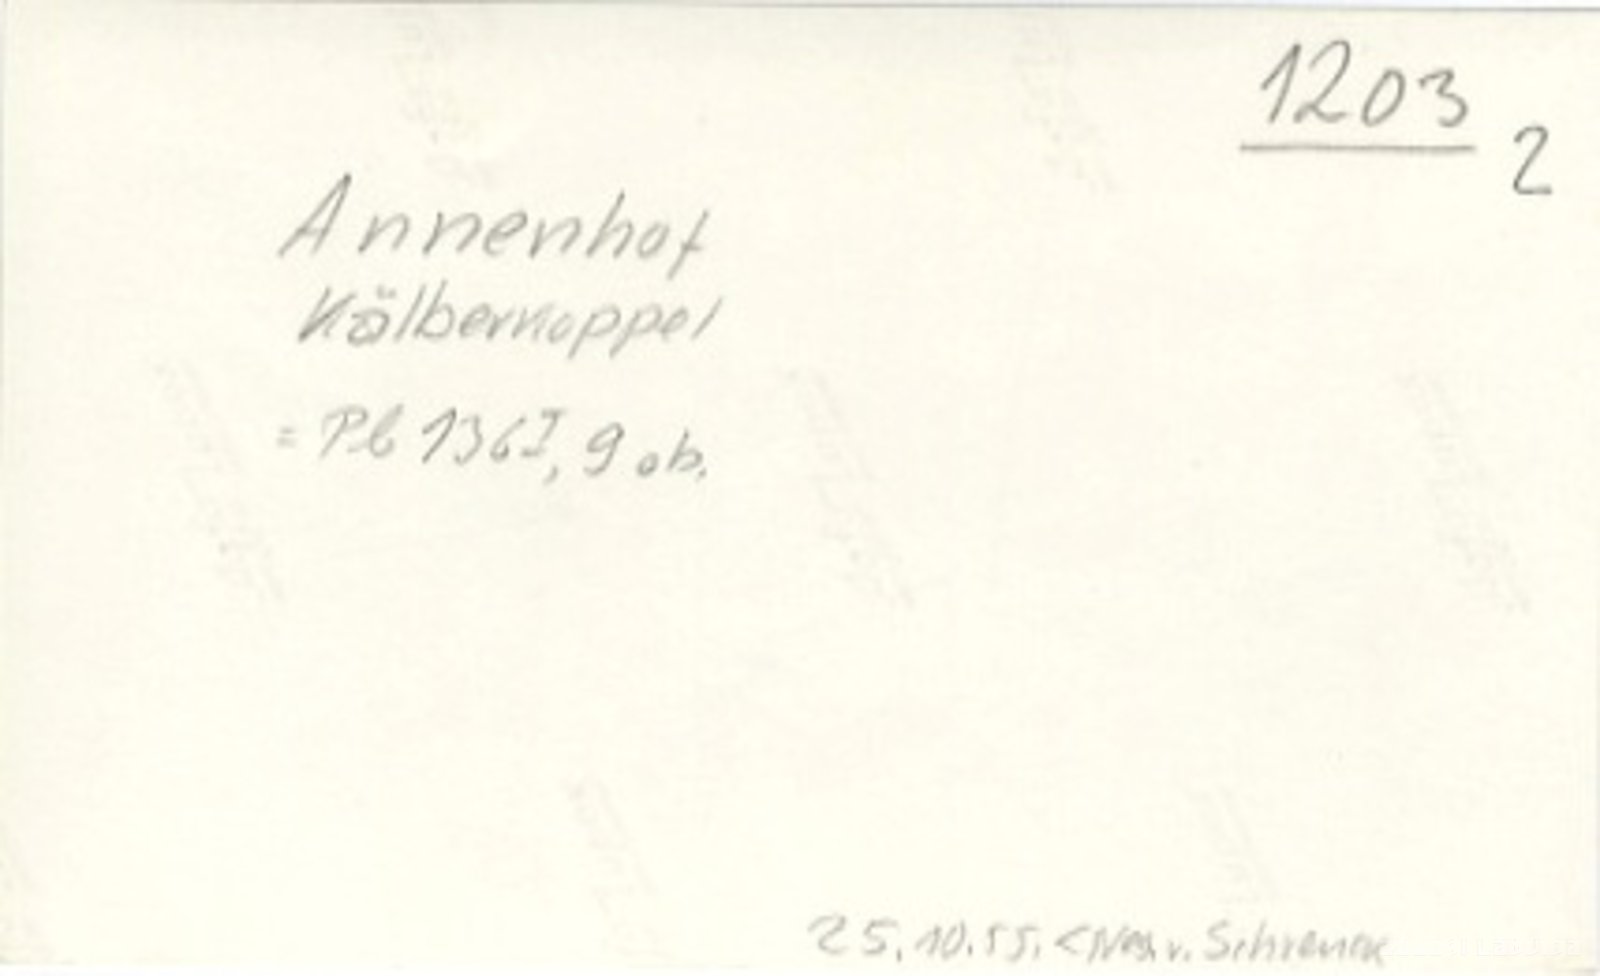 1203
2
Annenhof
Kälberkoppel
= Pb 136 I, 9 ob.
25.10.55. < Neg. v. Schrenck